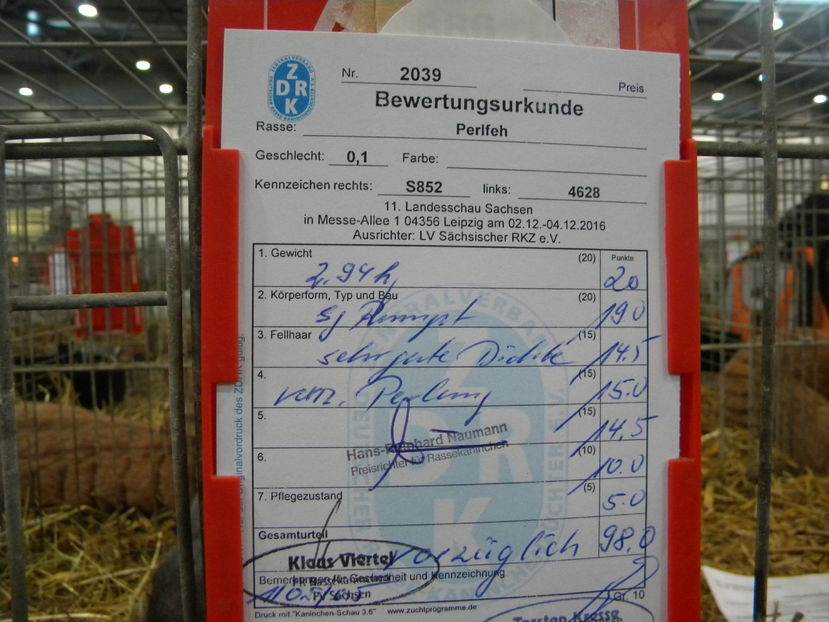 ZDRK
Nr. 2039 Preis
Bewertungsurkunde
Rasse: Perlfeh
Geschlecht: 0,1 Farbe:
Kennzeichen rechts: S852 links: 4628
11. Landesschau Sachsen
in Messe-Allee 1 04356 Leipzig am 02.12.-04.12.2016
Ausrichter: LV Sächsischer RKZ e.V.
1. Gewicht (20) Punkte
2,94 20
2. Körperform, Typ und Bau (20)
Rumpf 19.0
3. Fellhaar (15)
sehr gute Dichte 14.5
4. (15)
Perlung 15.0
5. (15)
14.5
Hans- Naumann
Preisrichter für Rassekaninchen
6. (10)
10.0
7. Pflegezustand (5)
5.0
Gesamturteil vorzüglich 98.0
Klaus Viertel
Bemerkungen für Gesundheit und Kennzeichnung
PV Sachsen
Gr. 10
Druck mit "Kaninchen-Schau 3.6" www.zuchtprogramme.de
Torsten
Originalvordruck des ZDRK gültig.